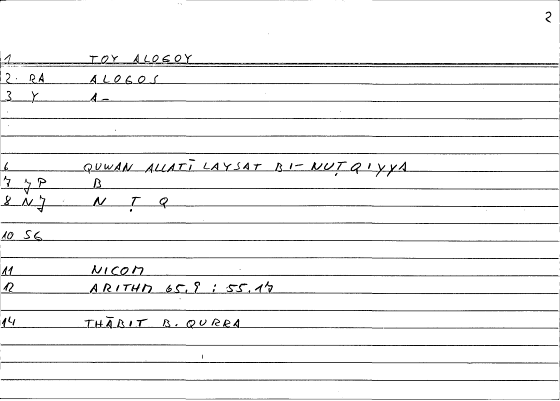 2
1 TOY ALOGOY
2 RA ALOGOS
3 Y A-
6 QUWAN ALLATĪ LAYSAT BI- NUṬQIYYA
7 JP B
8 NJ N Ṭ Q
10 SG
11 NICOM
12 ARITHM 65.9 : 55.17
14 THĀBIT B. QURRA